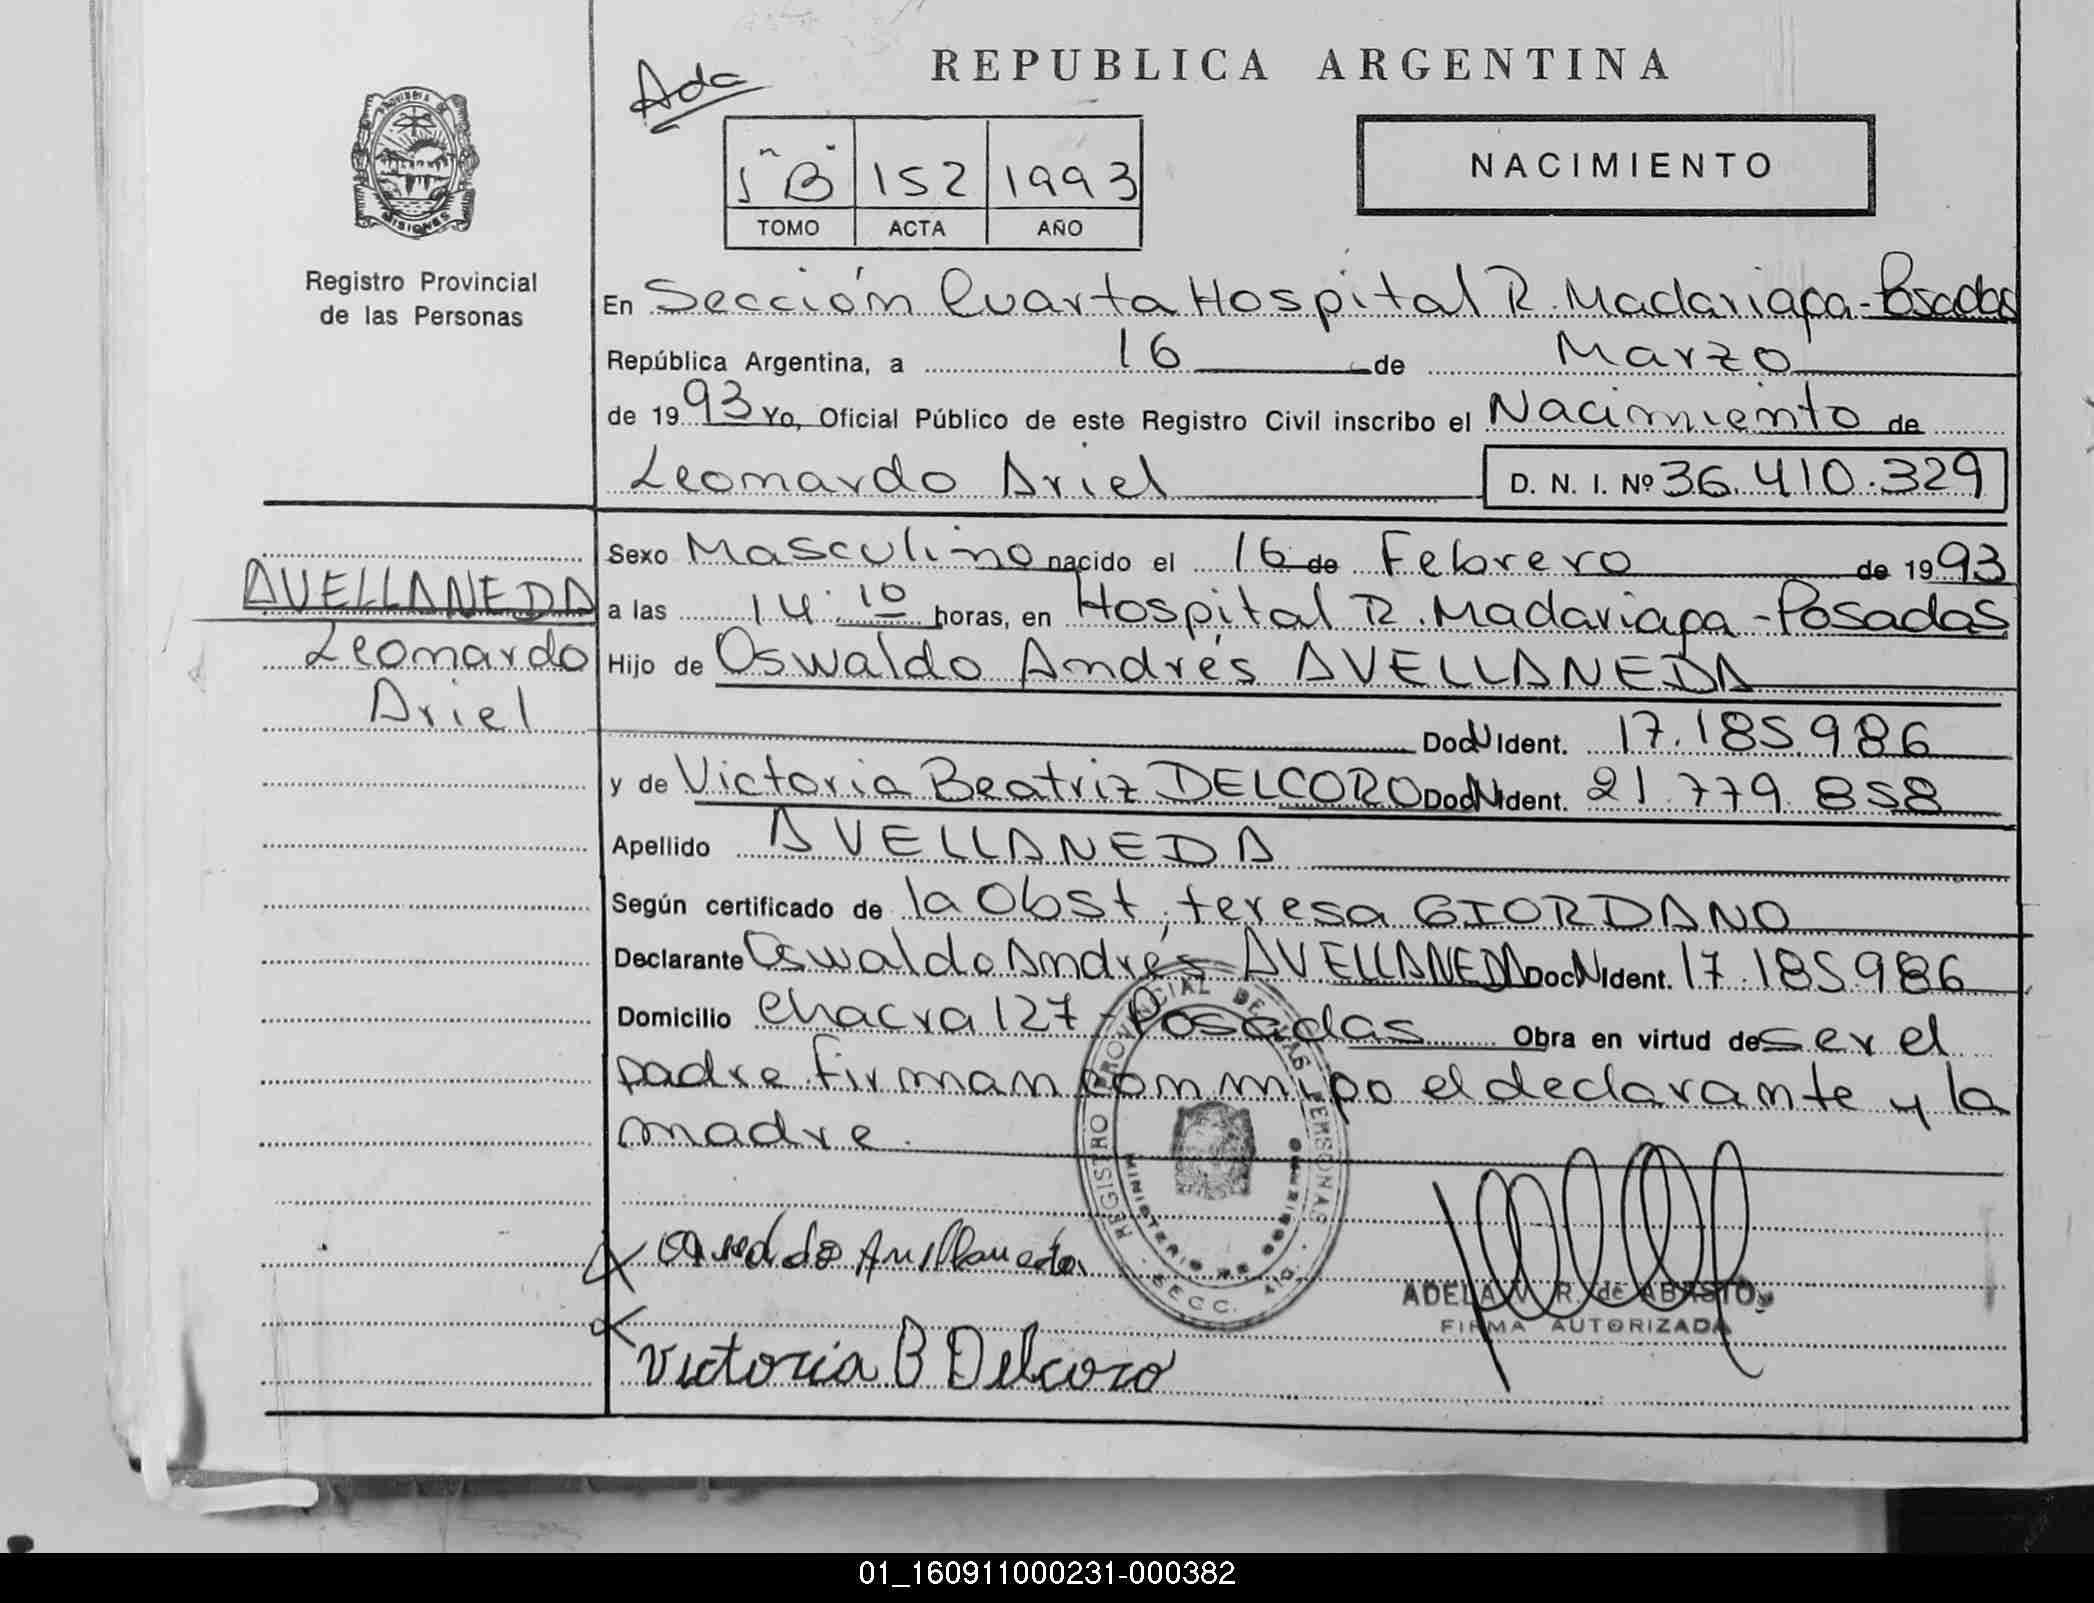 REPUBLICA ARGENTINA
Ada
1 "B" 152 1993
TOMO ACTA AÑO
NACIMIENTO
PROVINCIA DE
MISIONES
Registro Provincial
de las Personas
En Sección Cuarta Hospital R. Madariaga-Posadas
República Argentina, a 16 de Marzo
de 1993 Yo, Oficial Público de este Registro Civil inscribo el Nacimiento de
Leonardo Ariel D. N. I. Nº 36.410.329
Sexo Masculino nacido el 16 de Febrero de 1993
AVELLANEDA
Leonardo
Ariel
a las 14:10 horas, en Hospital R. Madariaga-Posadas
Hijo de Oswaldo Andrés AVELLANEDA
DocN Ident. 17.185.986
y de Victoria Beatriz DELCORO DocN Ident. 21.779.858
Apellido AVELLANEDA
Según certificado de la Obst. teresa GIORDANO
Declarante Oswaldo Andrés AVELLANEDA DocN Ident. 17.185.986
Domicilio chacra 127 - Posadas Obra en virtud de ser el
padre firman conmigo el declarante y la
madre.
REGISTRO PROVINCIAL DE LAS PERSONAS
MINISTERIO DE GOBIERNO
SECC.
Oswaldo Avellaneda
Victoria B Delcoro
ADELA V. R. de ABASTO
FIRMA AUTORIZADA
01_160911000231-000382